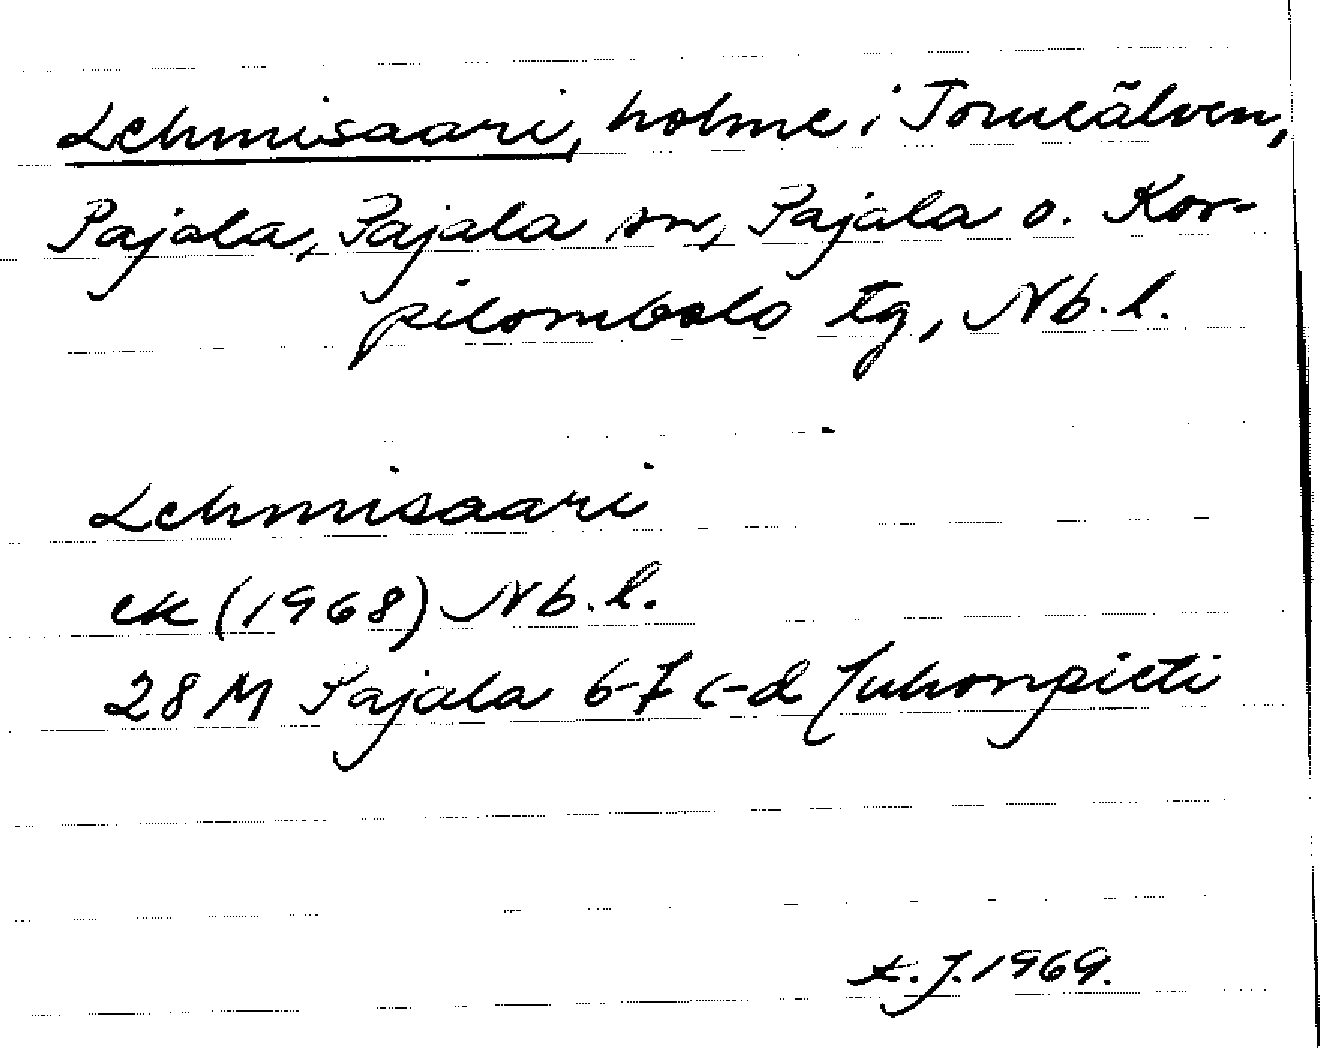 Lehmisaari, holme i Torneälven,
Pajala, Pajala sn, Pajala o. Kor-
pilombolo tg, Nb.l.
Lehmisaari
ek (1968) Nb.l.
28 M Pajala 6-7 c-d Juhonpieti
J. 1969.